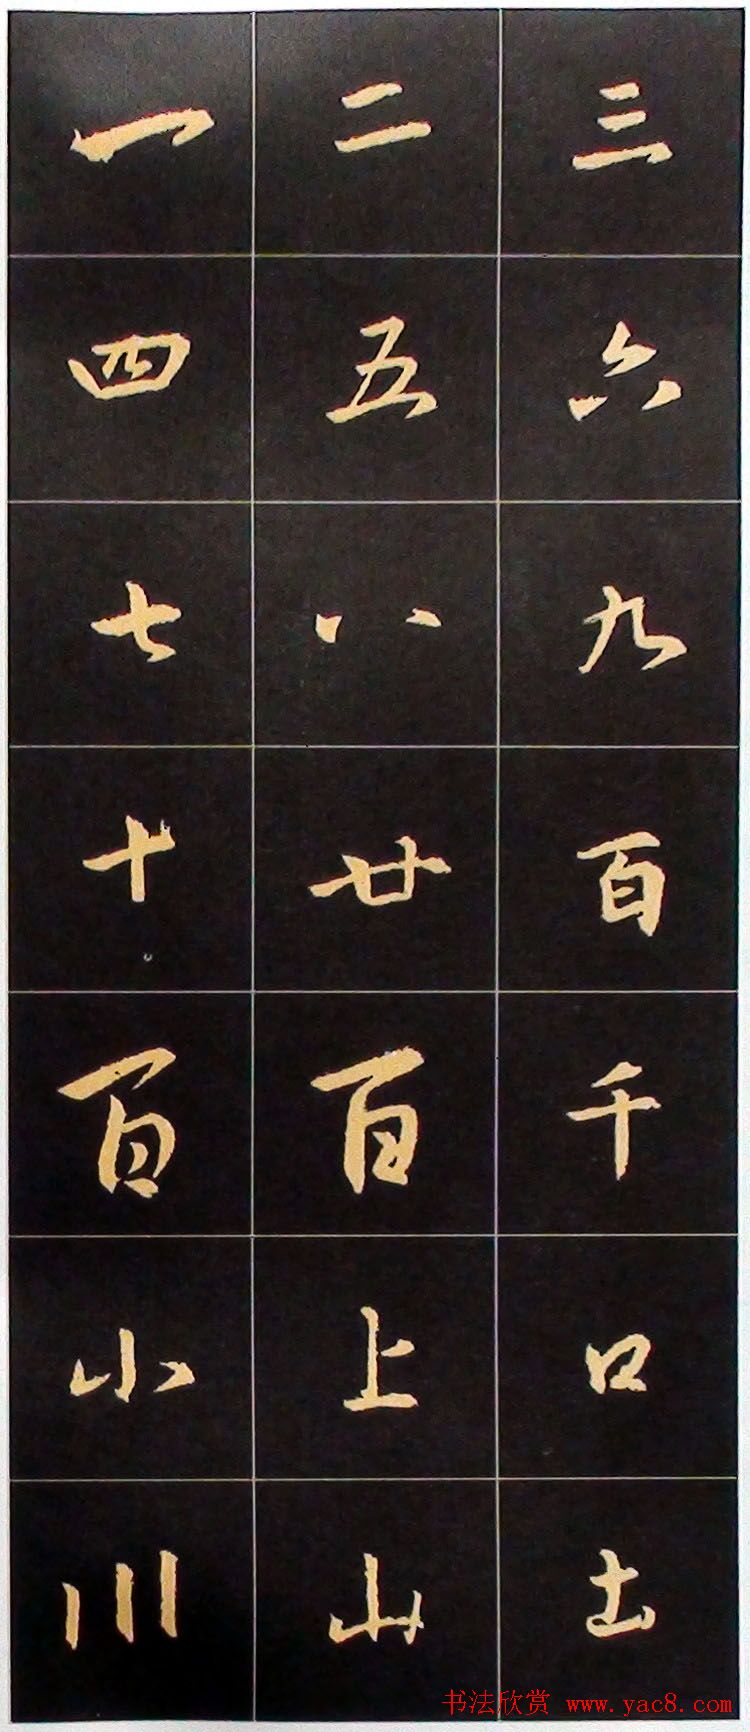 一 二 三
四 五 六
七 八 九
十 廿 百
百 百 千
小 上 口
川 山 土
书法欣赏 www.yac8.com